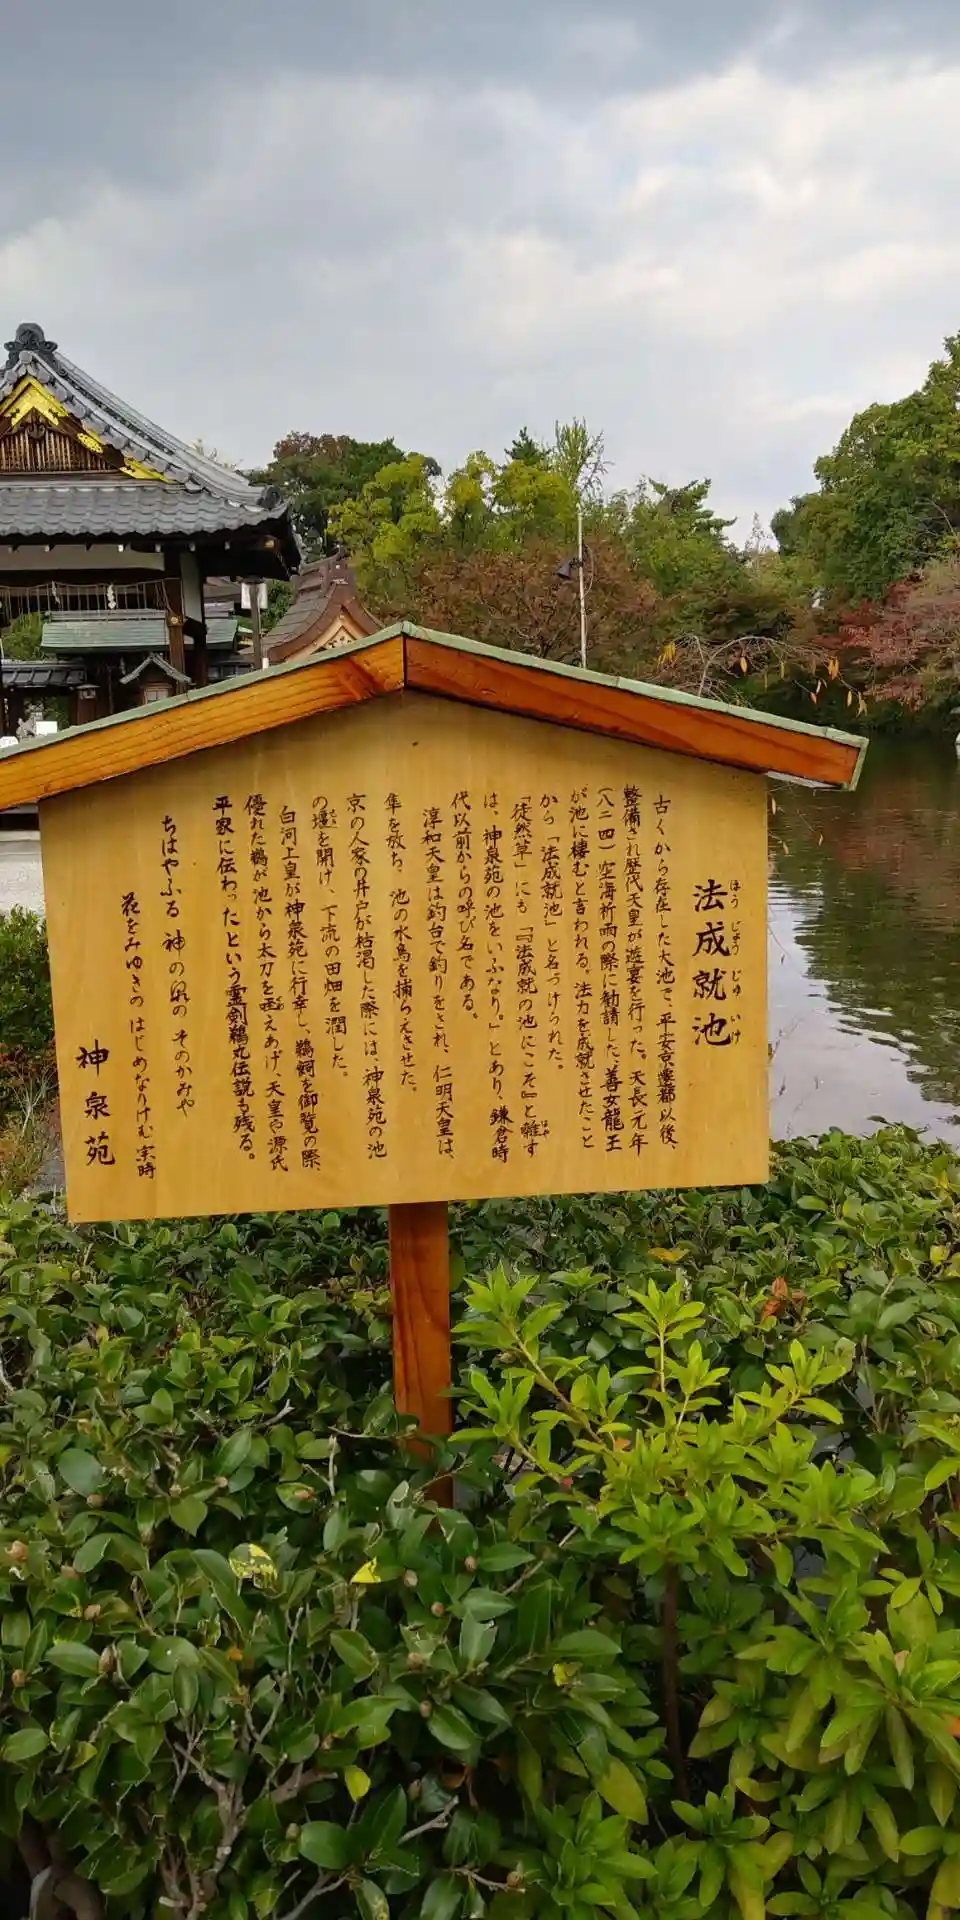 法成就池
ほう じょう じゅ いけ
古くから存在した大池で、平安京遷都以後、
整備され歴代天皇が遊宴を行った。天長元年
(八二四)空海祈雨の際に勧請した善女龍王
が池に棲むと言われる。法力を成就させたこと
から「法成就池」と名づけられた。
「徒然草」にも「『法成就の池にこそ』と囃す
はや
は、神泉苑の池をいふなり。」とあり、鎌倉時
代以前からの呼び名である。
淳和天皇は釣台で釣りをされ、仁明天皇は、
隼を放ち、池の水鳥を捕らえさせた。
京の人家の井戸が枯渇した際には、神泉苑の池
の堰を開け、下流の田畑を潤した。
せき
白河上皇が神泉苑に行幸し、鵜飼を御覧の際
優れた鵜が池から太刀を咥えあげ、天皇や源氏
平家に伝わったという霊剣鵜丸伝説も残る。
ちはやふる 神の泉の そのかみや
花をみゆきの はじめなりけむ 実時
神泉苑